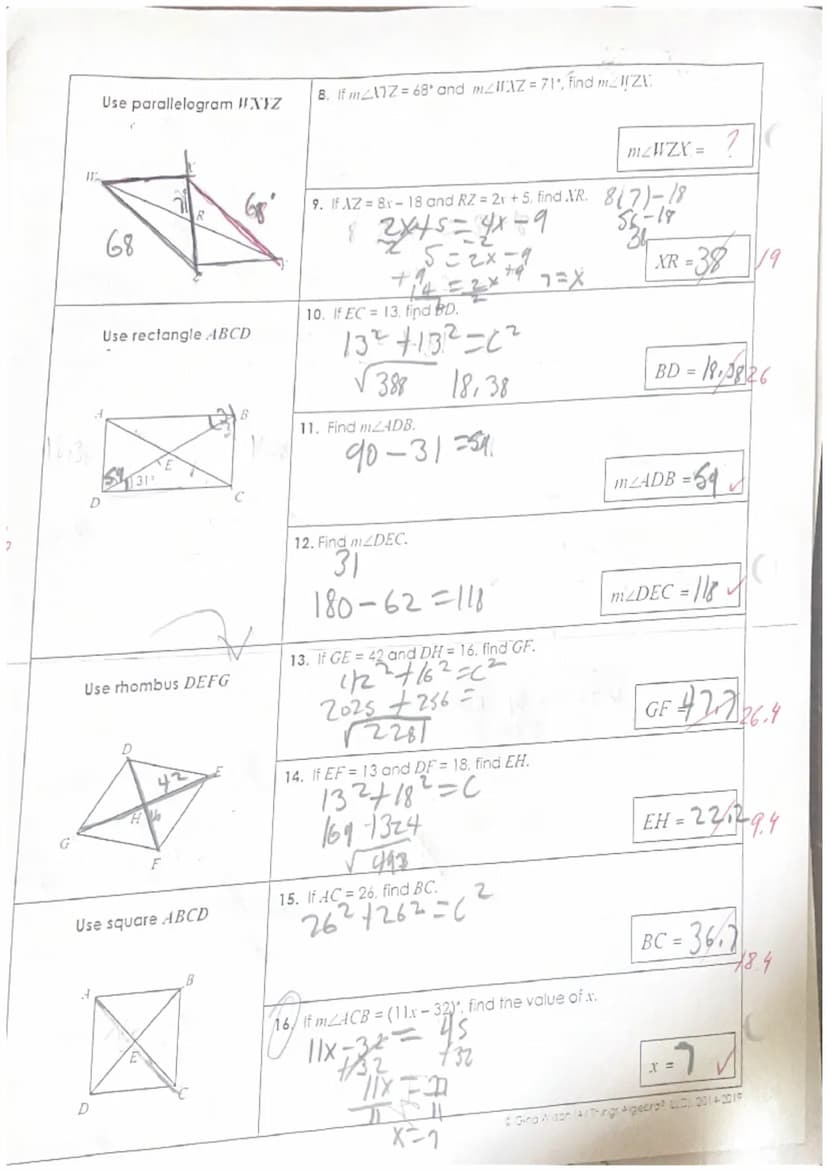 Use parallelogram WXYZ
W
X
71
R
68°
68
Y
8. If m∠XYZ = 68° and m∠WXZ = 71°, find m∠WZX.
m∠WZX = ?
9. If XZ = 8x – 18 and RZ = 2x + 5, find XR.
8(7)-18
56-18
38
2x+5 = 4x-9
-2
5 = 2x-9
+9 +9
14 = 2x
7=x
XR = 38 19
Use rectangle ABCD
A
B
E
59 31°
D
C
10. If EC = 13, find BD.
13² + 13² = C²
√388 18.38
BD = 18.38 26
11. Find m∠ADB.
90 - 31 = 59
m∠ADB = 59 ✓
12. Find m∠DEC.
31
180 - 62 = 118
m∠DEC = 118 ✓
Use rhombus DEFG
D
42
E
H 16
G
F
13. If GE = 42 and DH = 16, find GF.
42² + 16² = C²
2025 + 256 =
√2281
GF = 47.7 26.4
14. If EF = 13 and DF = 18, find EH.
13² + 18² = C
169 + 324
√493
EH = 22.2 9.4
Use square ABCD
A
B
E
D
C
15. If AC = 26, find BC.
26² + 26² = C²
BC = 36.7
18.4
16. If m∠ACB = (11x – 32)°, find the value of x.
11x - 32 = 45
+32 +32
11x = 77
11 11
x = 7
x = 7 ✓
© Gina Wilson (All Things Algebra®, LLC), 2014-2019